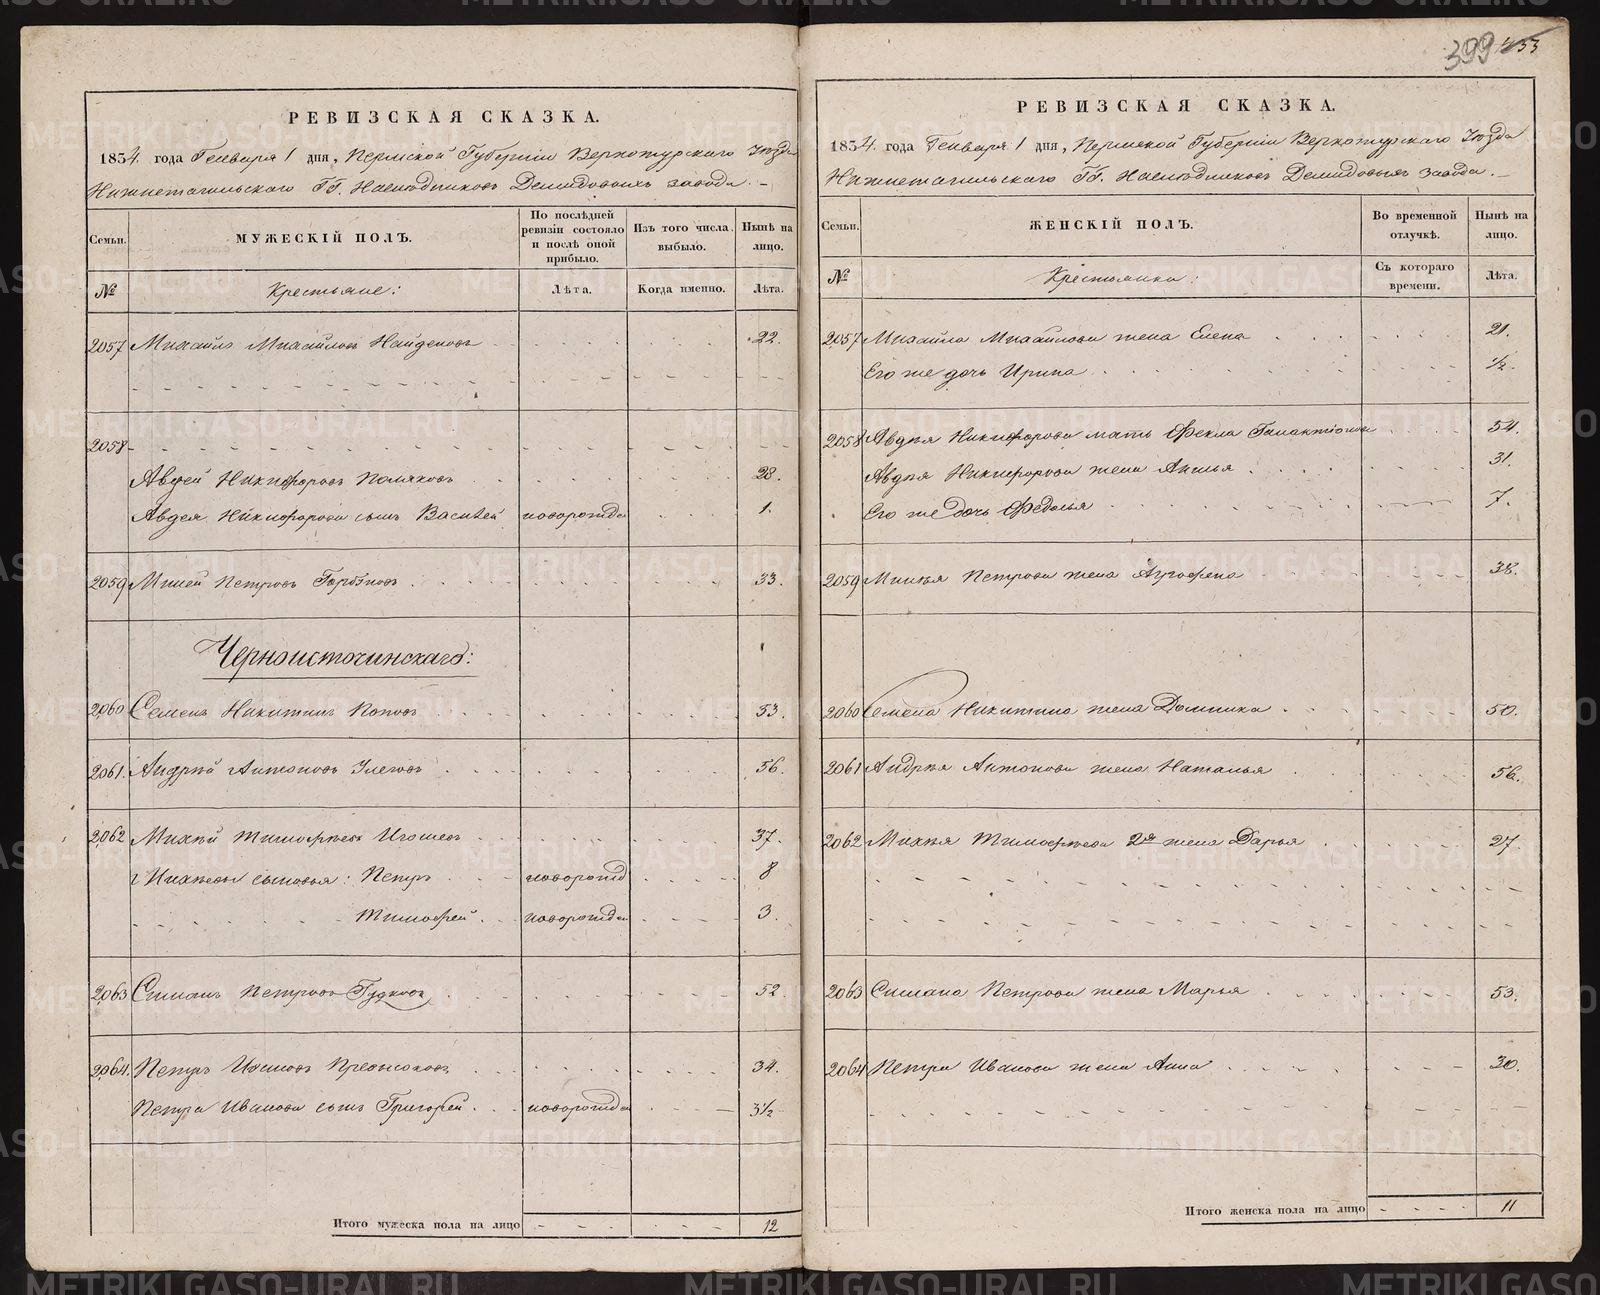 399 453
РЕВИЗСКАЯ СКАЗКА.
1834. года Генваря 1 дня, Пермской Губернiи Верхотурскаго Уѣзда
Нижнетагильскаго ГГ. Наслѣдниковъ Демидовыхъ завода. –
Семьи.
МУЖЕСКIЙ ПОЛЪ.
По послѣдней ревизiи состояло и послѣ оной прибыло.
Изъ того числа выбыло.
Нынѣ на лицо.
№
Крестьяне:
Лѣта.
Когда именно.
Лѣта.
2057 Михайло Михайловъ Найденовъ 22.
2058
Авдей Никифоровъ Поляковъ 28.
Авдея Никифорова сынъ Василей новорожде 1.
2059 Миней Петровъ Горбуновъ 33.
Черноисточинскаго:
2060 Семенъ Никитинъ Поповъ 53.
2061. Андрѣй Антоновъ 56.
2062 Михѣй Тимофѣевъ 37.
Михѣевы сыновья: Петръ новорожд 8
Тимофей новорожден 3.
2063 Симанъ Петровъ Гудковъ 52.
2064. Петръ Ивановъ 34.
Петра Иванова сынъ Григорей новорожден 3½
Итого мужеска пола на лицо 12
РЕВИЗСКАЯ СКАЗКА.
1834. года Генваря 1 дня, Пермской Губернiи Верхотурскаго Уѣзда
Нижнетагильскаго ГГ. Наслѣдниковъ Демидовыхъ завода. –
Семьи.
ЖЕНСКIЙ ПОЛЪ.
Во временной отлучкѣ.
Нынѣ на лицо.
№
Крестьянки:
Съ котораго времени.
Лѣта.
2057 Михайла Михайлова жена Елена 21.
Его же дочь Ирина ½.
2058 Авдѣя Никифорова мать Фекла Галактiонова 54.
Авдѣя Никифорова жена Анисья 31.
Его же дочь Федосья 7.
2059 Минѣя Петрова жена Агрофена 38.
2060 Семена Никитина жена Домника 50.
2061 Андрѣя Антонова жена Наталья 56.
2062 Михѣя Тимофѣева 2я жена Дарья 27
2063 Симана Петрова жена Марья 53.
2064 Петра Иванова жена Анна 30.
Итого женска пола на лицо 11
METRIKI.GASO-URAL.RU